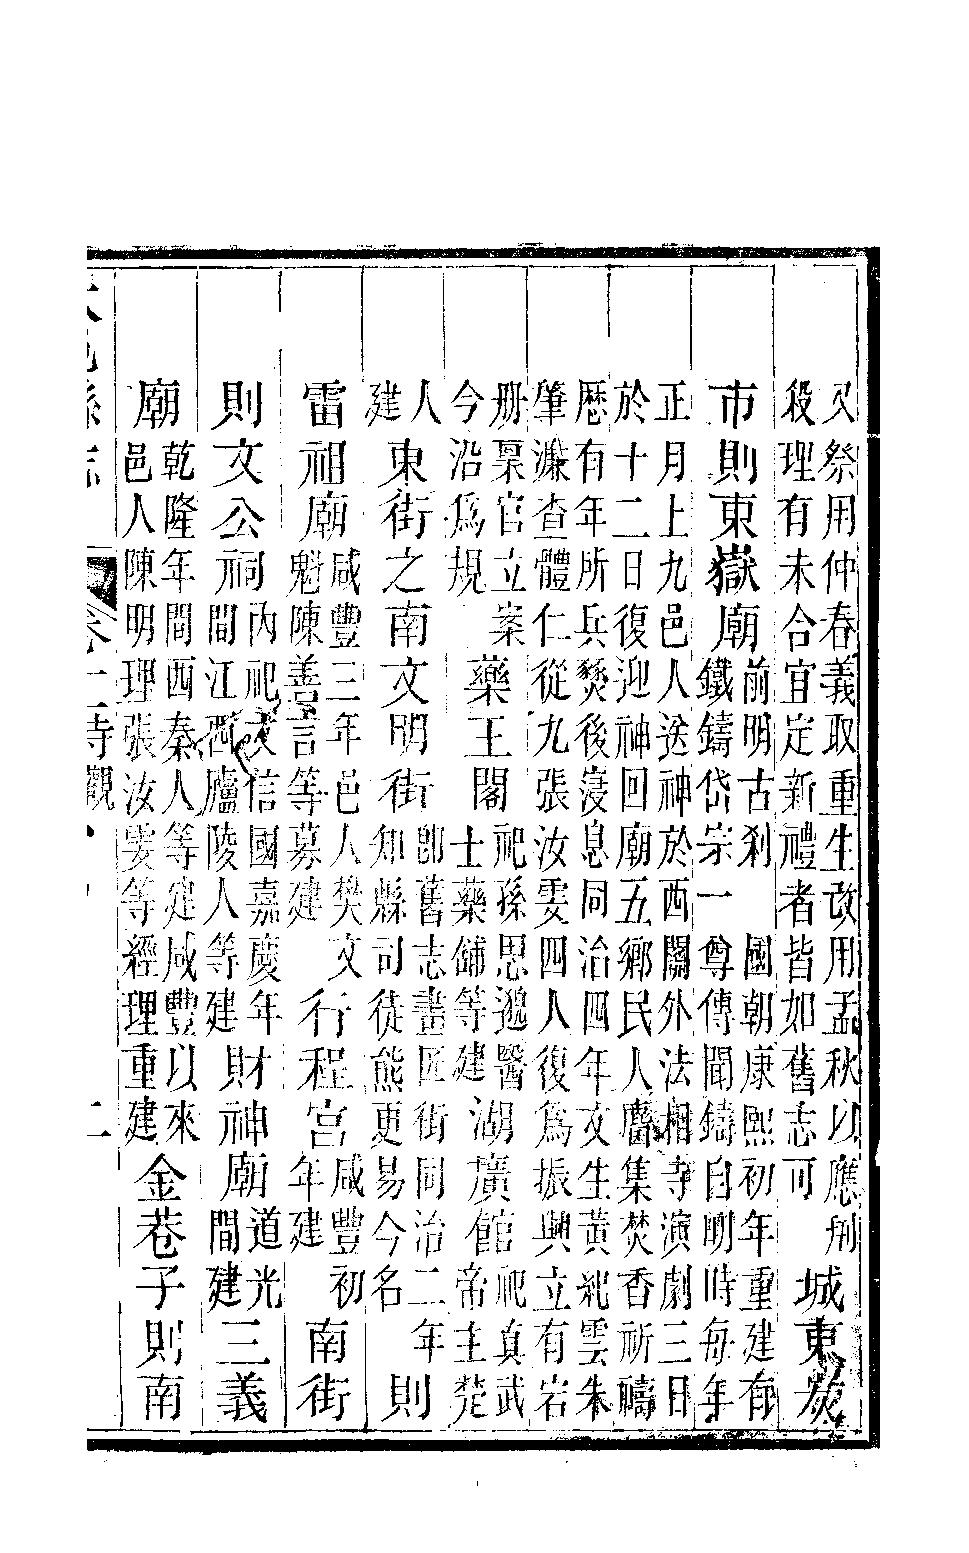 又祭用仲春義取重生改用孟秋以應刑
殺理有未合宜定新禮者皆如舊志可
城東炭
市則東嶽廟
前明古刹 國朝康熙初年重建有
鐵鑄岱宗一尊傳聞鑄自明時每年
正月上九邑人送神於西關外法相寺演劇三日
於十二日復迎神回廟五鄉民人麕集焚香祈禱
歷有年所兵燹後寖息同治四年文生黃紀雲朱
肇濂查體仁從九張汝雯四人復爲振興立有岩
册稟官立案
今沿爲規
藥王閣
祀孫思邈醫
士藥鋪等建
湖廣館
祀真武
帝主楚
人
建
東街之南文明街
卽舊志畫匠街同治二年
知縣司徒熊更易今名
則
雷祖廟
咸豐三年邑人樊文
魁陳善言等募建
行程宮
咸豐初
年建
南街
則文公祠
內祀文信國嘉慶年
間江西廬陵人等建
財神廟
道光
間建
三義
廟
乾隆年間西秦人等建咸豐以來
邑人陳明理張汝雯等經理重建
金巷子則南
縣志
卷二寺觀
二